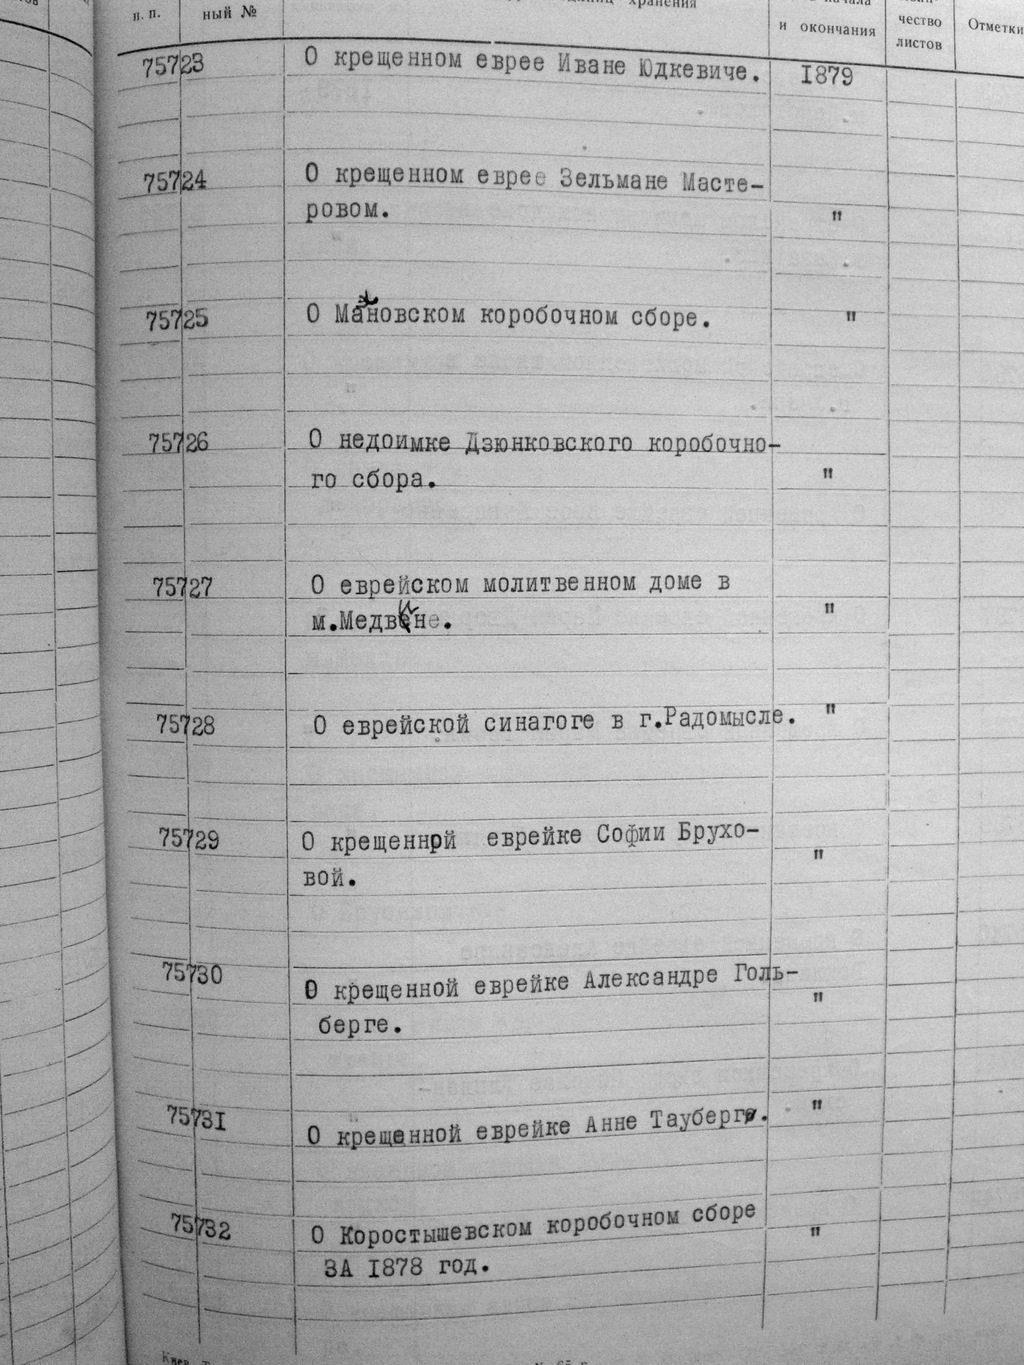 п. п.
ный №
хранения
начала
и окончания
чество
листов
Отметки
75723 О крещенном еврее Иване Юдкевиче. 1879
75724 О крещенном еврее Зельмане Масте-
ровом. "
75725 О Мановском коробочном сборе. "
75726 О недоимке Дзюнковского коробочно-
го сбора. "
75727 О еврейском молитвенном доме в
м.Медвене. "
75728 О еврейской синагоге в г.Радомысле. "
75729 О крещенной еврейке Софии Брухо-
вой. "
75730 О крещенной еврейке Александре Голь-
берге. "
75731 О крещенной еврейке Анне Тауберге. "
75732 О Коростышевском коробочном сборе
ЗА 1878 год. "